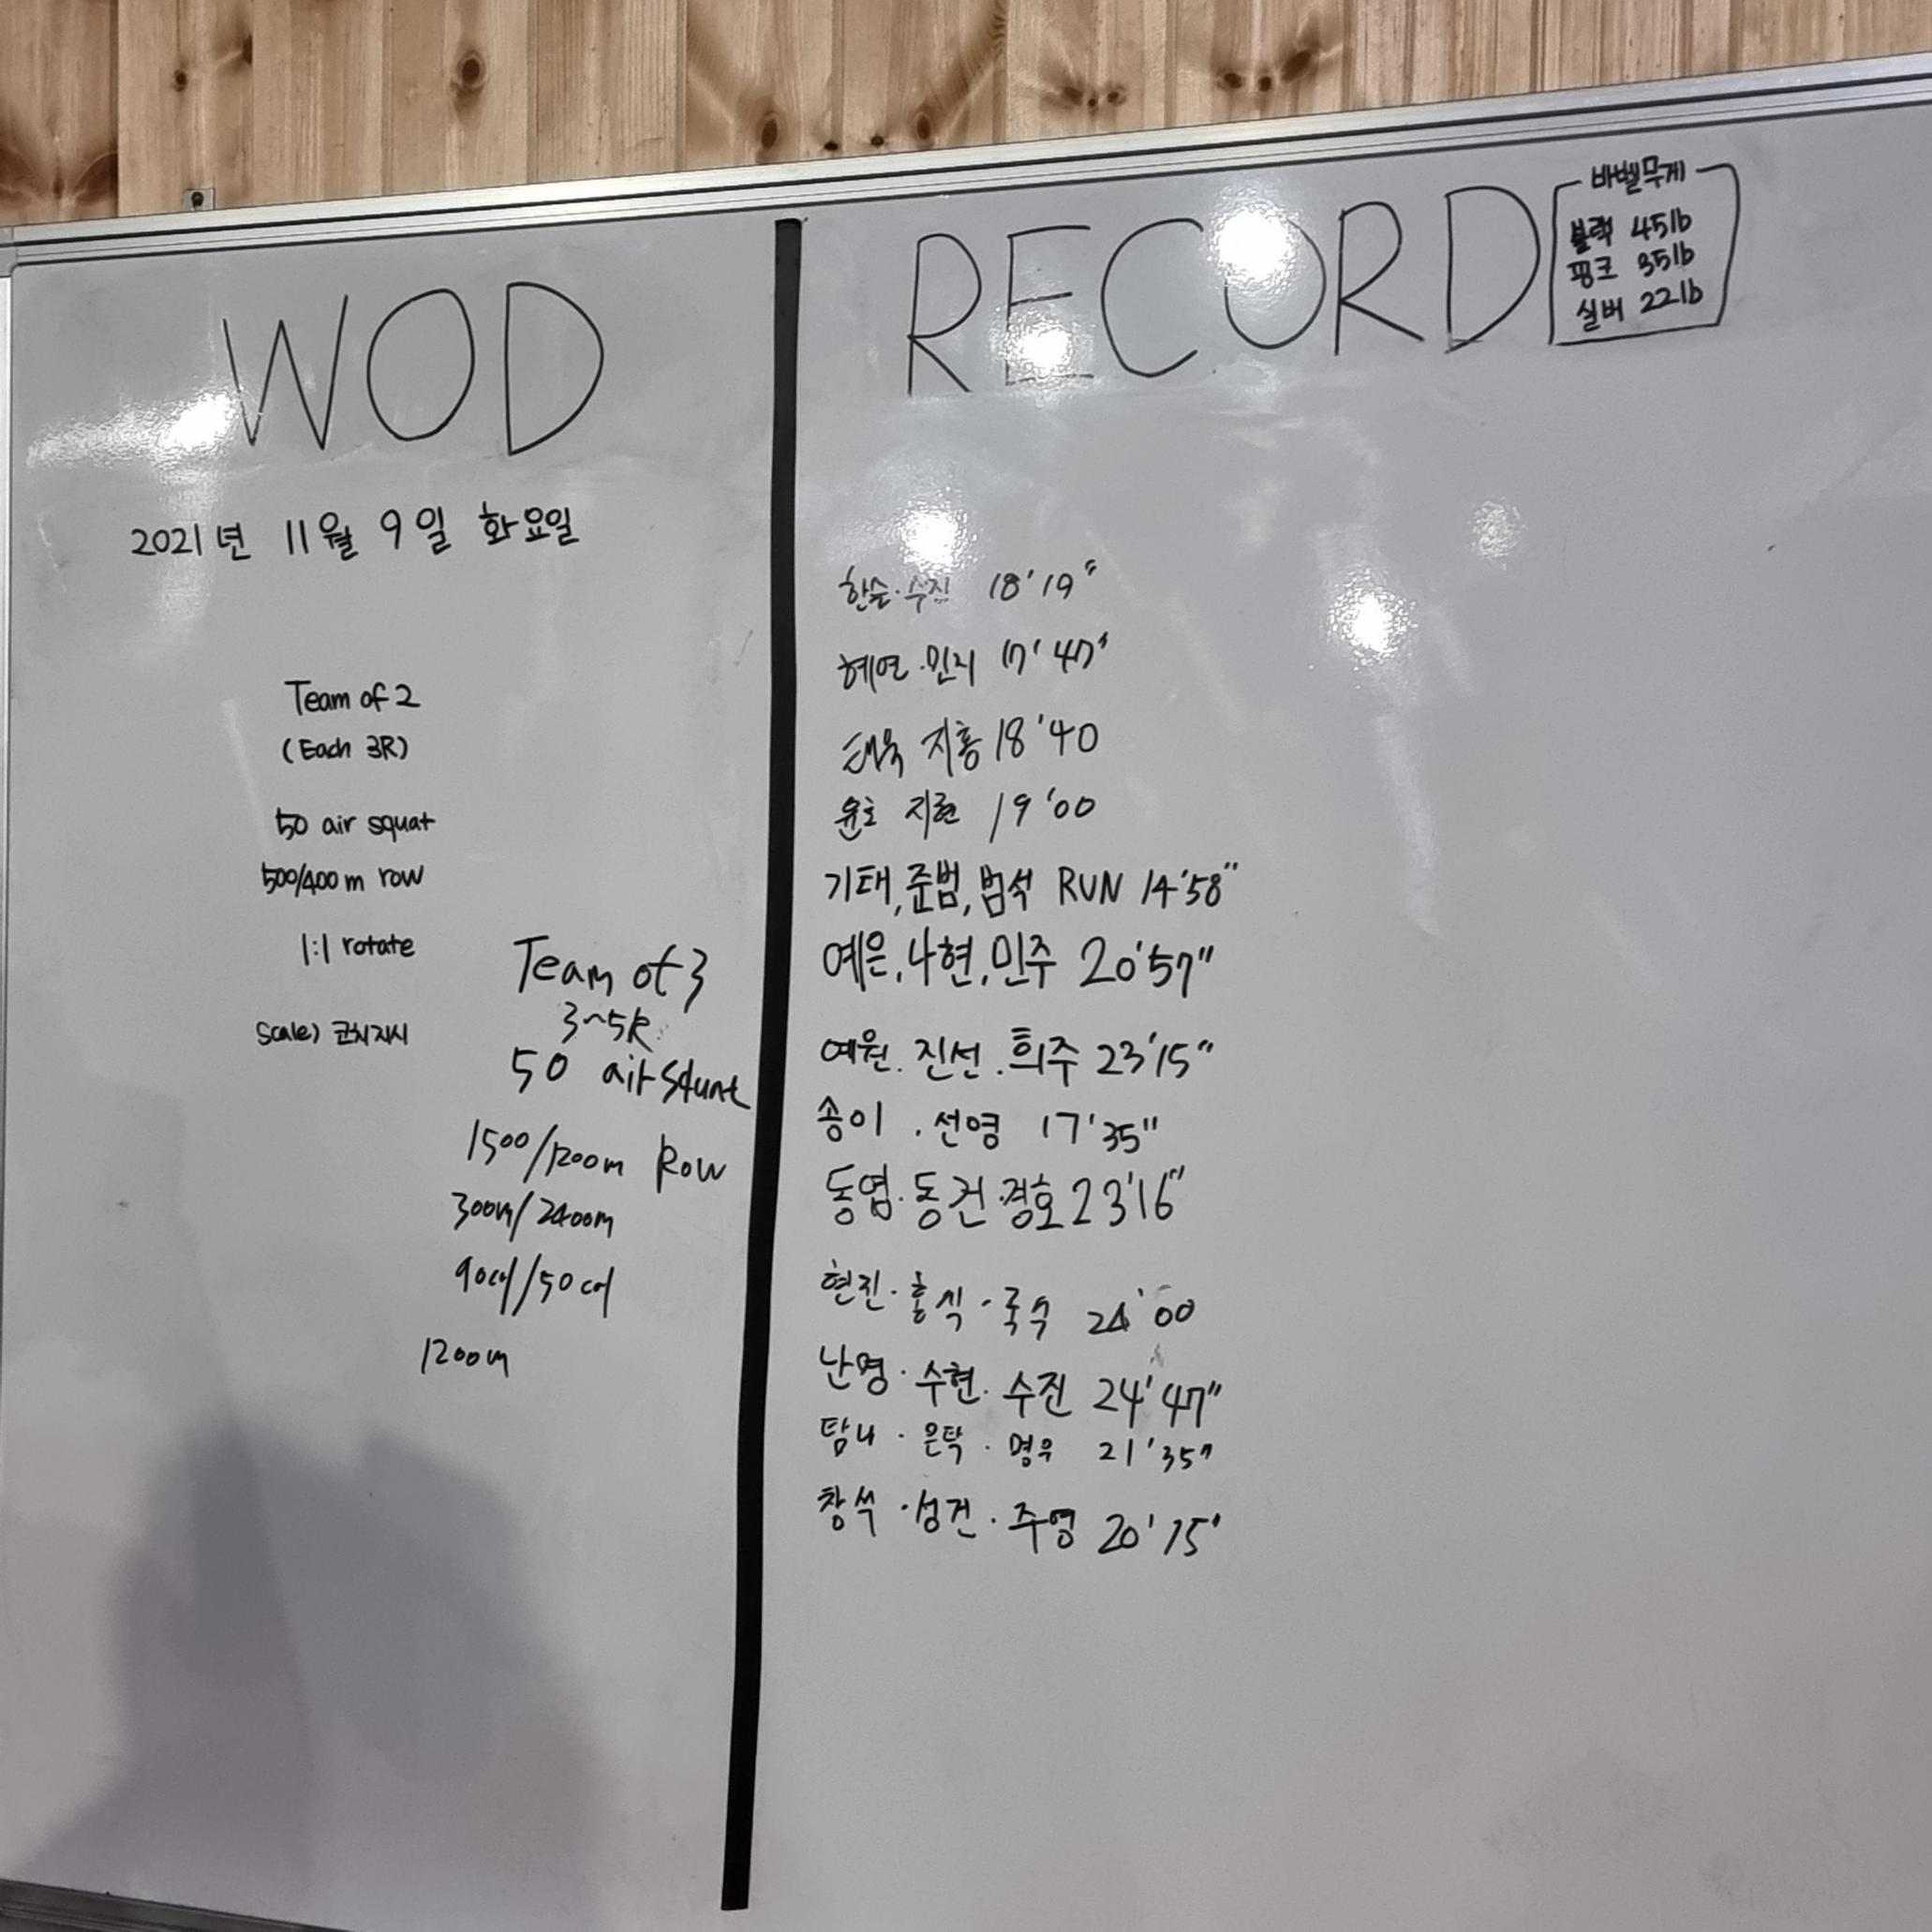 WOD
2021년 11월 9일 화요일
Team of 2
(Each 3R)
50 air squat
500/400m row
1:1 rotate
Scale) 코치지시
Team of 3
3~5R
50 air squat
1500/1200m Row
300m/2400m
90cal/50cal
1200m
RECORD
바벨무게
블랙 45lb
핑크 35lb
실버 22lb
한슬·수진 18'19"
혜연·민지 17'47"
태욱 지홍 18'40
윤호 지현 19'00
기태,준범,범석 RUN 14'58"
예은,나현,민주 20'57"
예원.진선.희주 23'15"
송이.선영 17'35"
동엽·동건·경호 23'16"
현진·홍식·국수 24'00
난영·수현·수진 24'47"
탐나·은탁·명우 21'35"
창석·성건·주영 20'15'